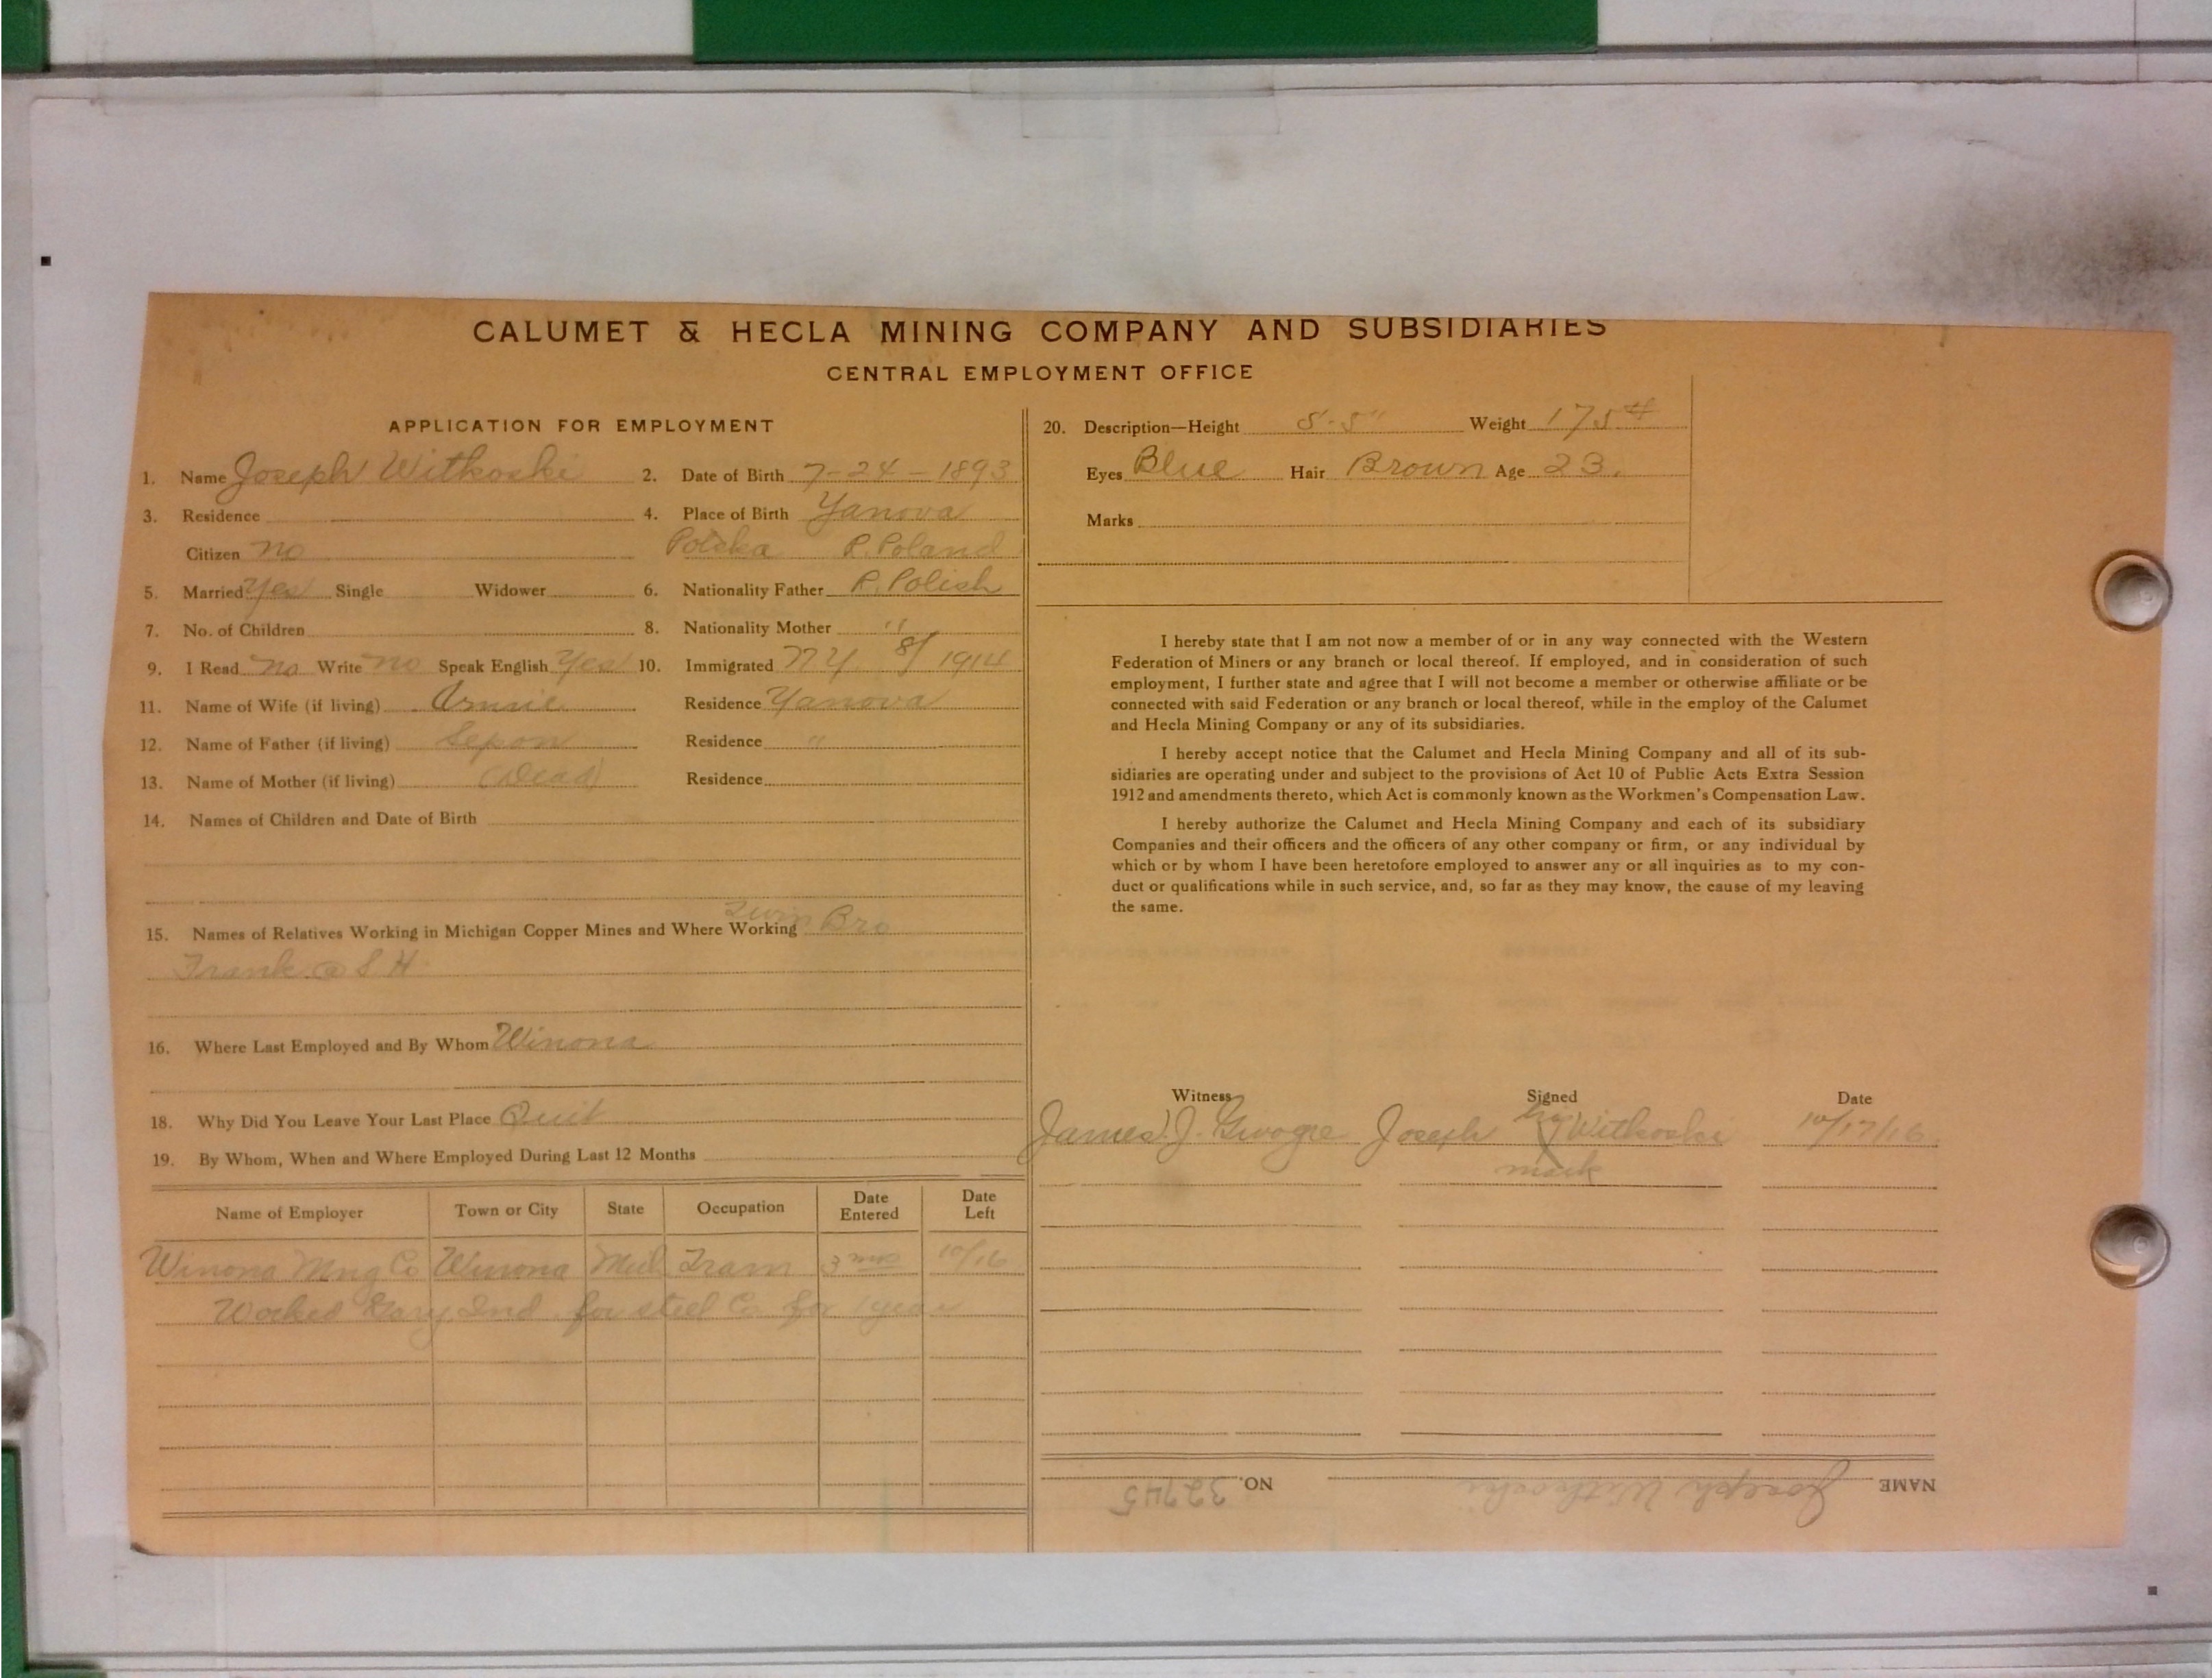 CALUMET & HECLA MINING COMPANY AND SUBSIDIARIES
CENTRAL EMPLOYMENT OFFICE
APPLICATION FOR EMPLOYMENT
1. Name Joseph Witkoski 2. Date of Birth 7-24-1893
3. Residence 4. Place of Birth Yanova
Citizen no Polska R. Poland
5. Married Yes Single Widower 6. Nationality Father R. Polish
7. No. of Children 8. Nationality Mother "
9. I Read no Write no Speak English Yes 10. Immigrated NY. 8/1914
11. Name of Wife (if living) Residence Yanova
12. Name of Father (if living) Sepon Residence "
13. Name of Mother (if living) (Dead) Residence
14. Names of Children and Date of Birth
15. Names of Relatives Working in Michigan Copper Mines and Where Working Twin Bro
Frank @ S H
16. Where Last Employed and By Whom Winona
18. Why Did You Leave Your Last Place Quit
19. By Whom, When and Where Employed During Last 12 Months
Name of Employer Town or City State Occupation Date Entered Date Left
Winona Mng Co Winona Mich Tram 3 mos 10/16
Worked Gary Ind for steel Co for 1 year
20. Description—Height 5'-5" Weight 175#
Eyes Blue Hair Brown Age 23.
Marks
I hereby state that I am not now a member of or in any way connected with the Western
Federation of Miners or any branch or local thereof. If employed, and in consideration of such
employment, I further state and agree that I will not become a member or otherwise affiliate or be
connected with said Federation or any branch or local thereof, while in the employ of the Calumet
and Hecla Mining Company or any of its subsidiaries.
I hereby accept notice that the Calumet and Hecla Mining Company and all of its sub-
sidiaries are operating under and subject to the provisions of Act 10 of Public Acts Extra Session
1912 and amendments thereto, which Act is commonly known as the Workmen's Compensation Law.
I hereby authorize the Calumet and Hecla Mining Company and each of its subsidiary
Companies and their officers and the officers of any other company or firm, or any individual by
which or by whom I have been heretofore employed to answer any or all inquiries as to my con-
duct or qualifications while in such service, and, so far as they may know, the cause of my leaving
the same.
Witness Signed Date
James J. Joseph his X Witkoski 10/17/16
mark
NAME Joseph Witkoski NO. 32745